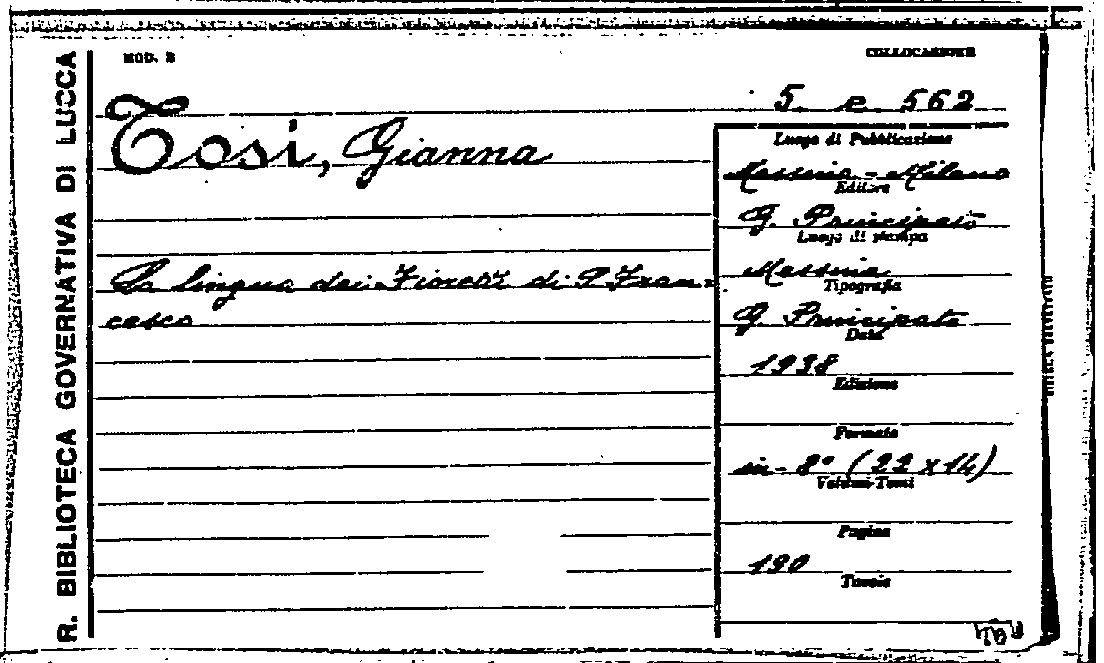 R. BIBLIOTECA GOVERNATIVA DI LUCCA
MOD. B
COLLOCAZIONE
5. e 562
Tosi, Gianna
La lingua dei Fioretti di S. Fran-
cesco
Luogo di Pubblicazione
Messina - Milano
Editore
G. Principato
Luogo di stampa
Messina
Tipografia
G. Principato
Data
1938
Edizione
Formato
in-8° (22 x 14)
Volumi-Tomi
Pagine
190
Tavole